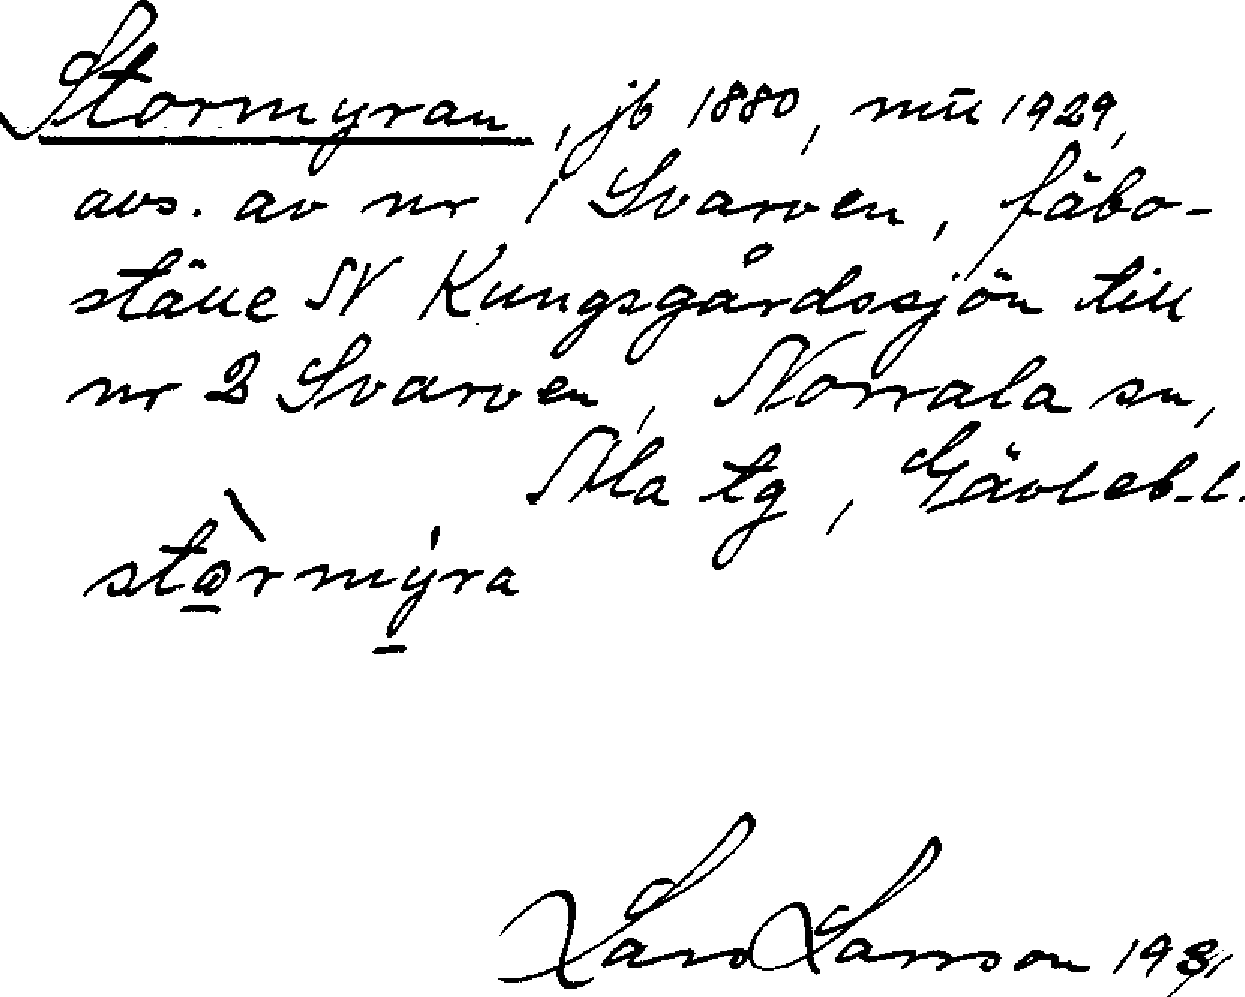 Stormyran, jb 1880, mū 1929,
avs. av nr 1 Svarven, fäbo-
ställe N Kungsgårdssjön till
nr 3 Svarven, Norrala sn,
Ala tg, Gävleb. l.
stòrmýra
Lars Larsson 1931